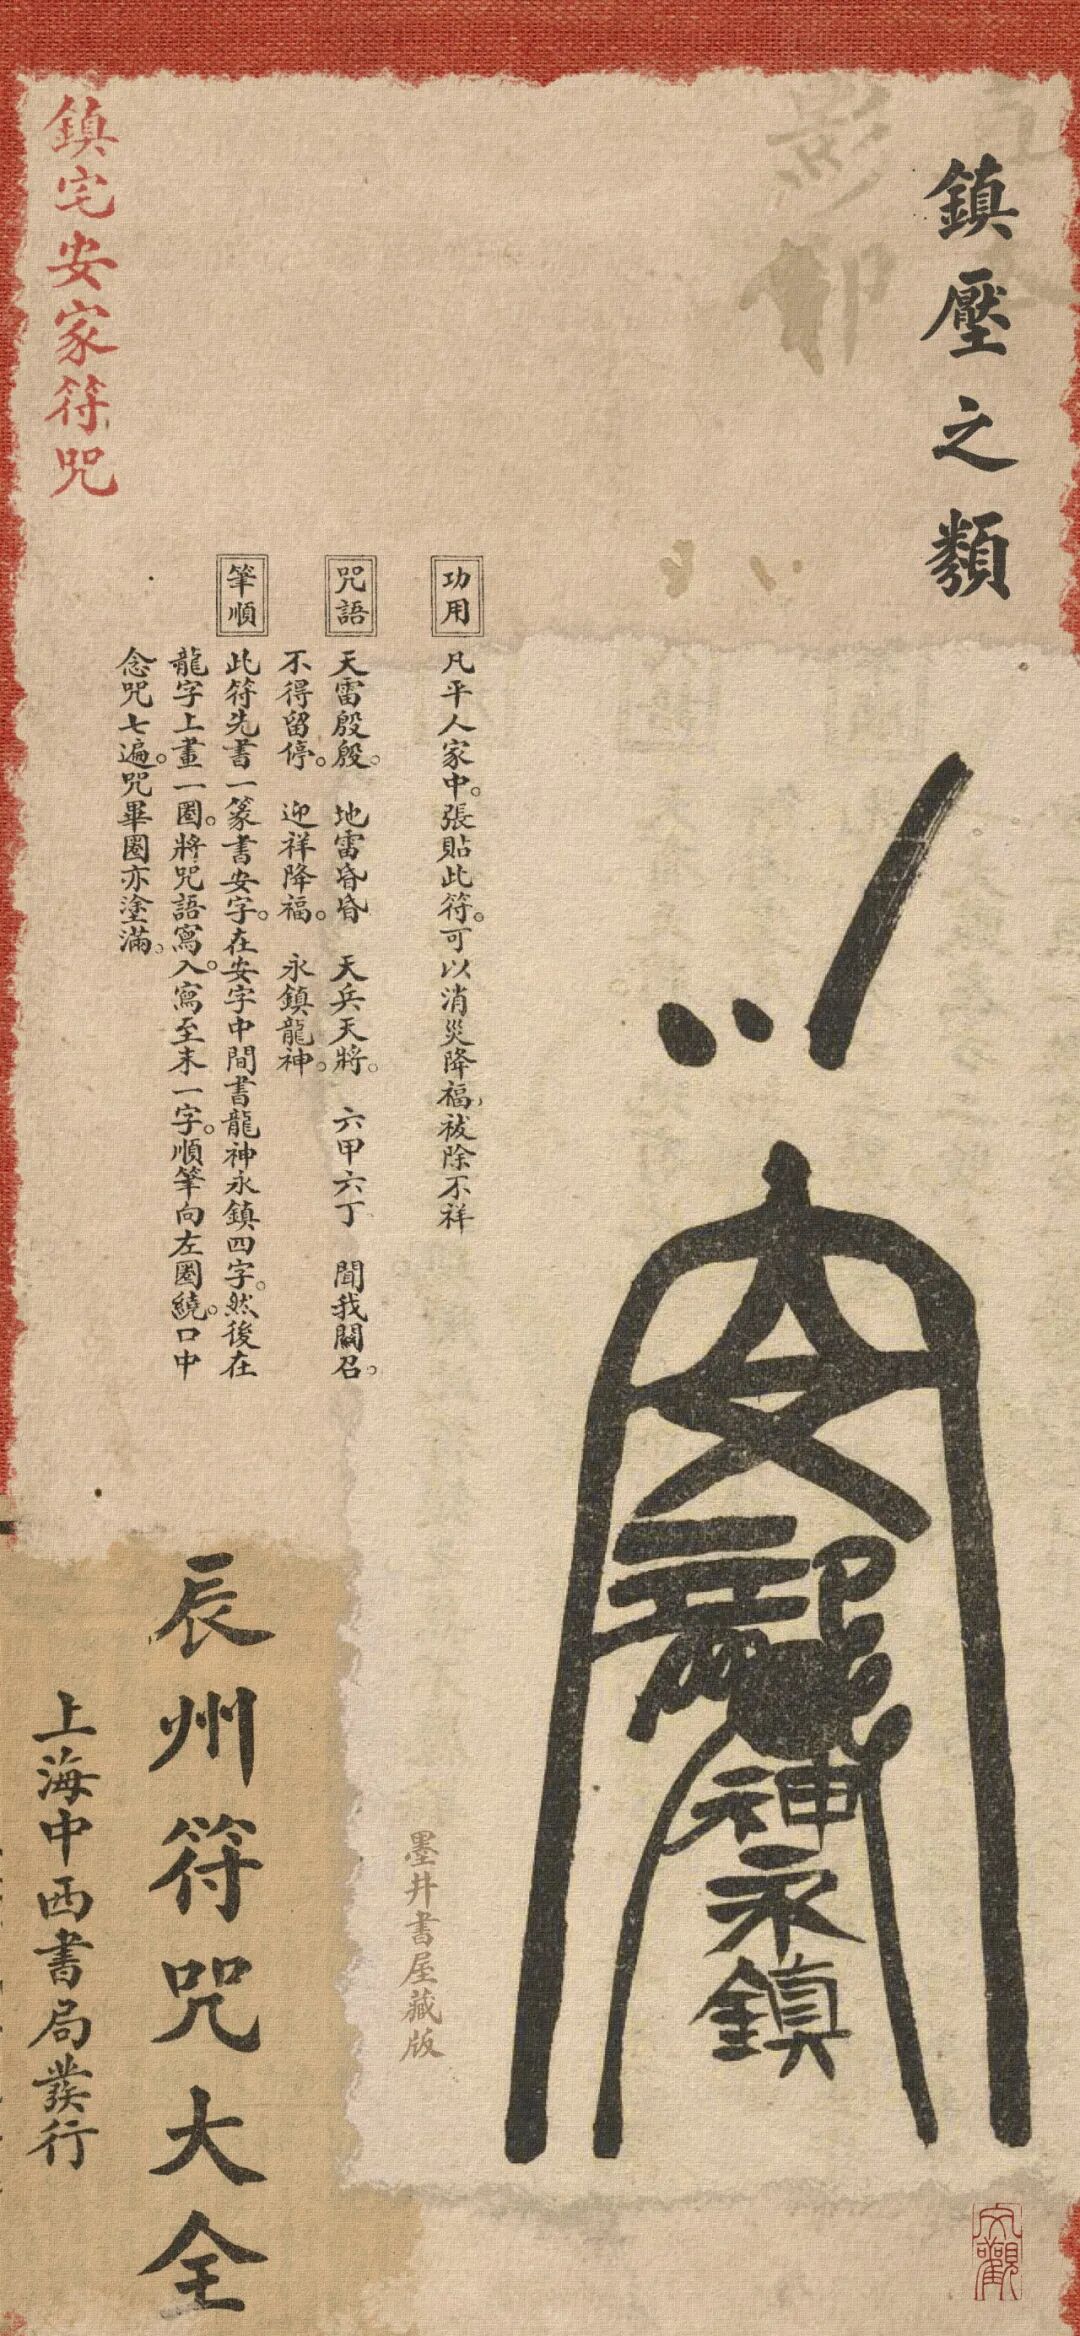 鎮壓之類
功用
凡平人家中。張貼此符。可以消災降福，祓除不祥
咒語
天雷殷殷。　地雷昏昏　天兵天將。　六甲六丁　聞我關召。
不得留停。　迎祥降福。　永鎮龍神。
筆順
此符先書一篆書安字。在安字中間書龍神永鎮四字。然後在
龍字上畫一圈。將咒語寫入。寫至末一字。順筆向左圈繞。口中
念咒七遍。咒畢圈亦塗滿。
鎮宅安家符咒
神永鎮
墨井書屋藏版
辰州符咒大全
上海中西書局發行